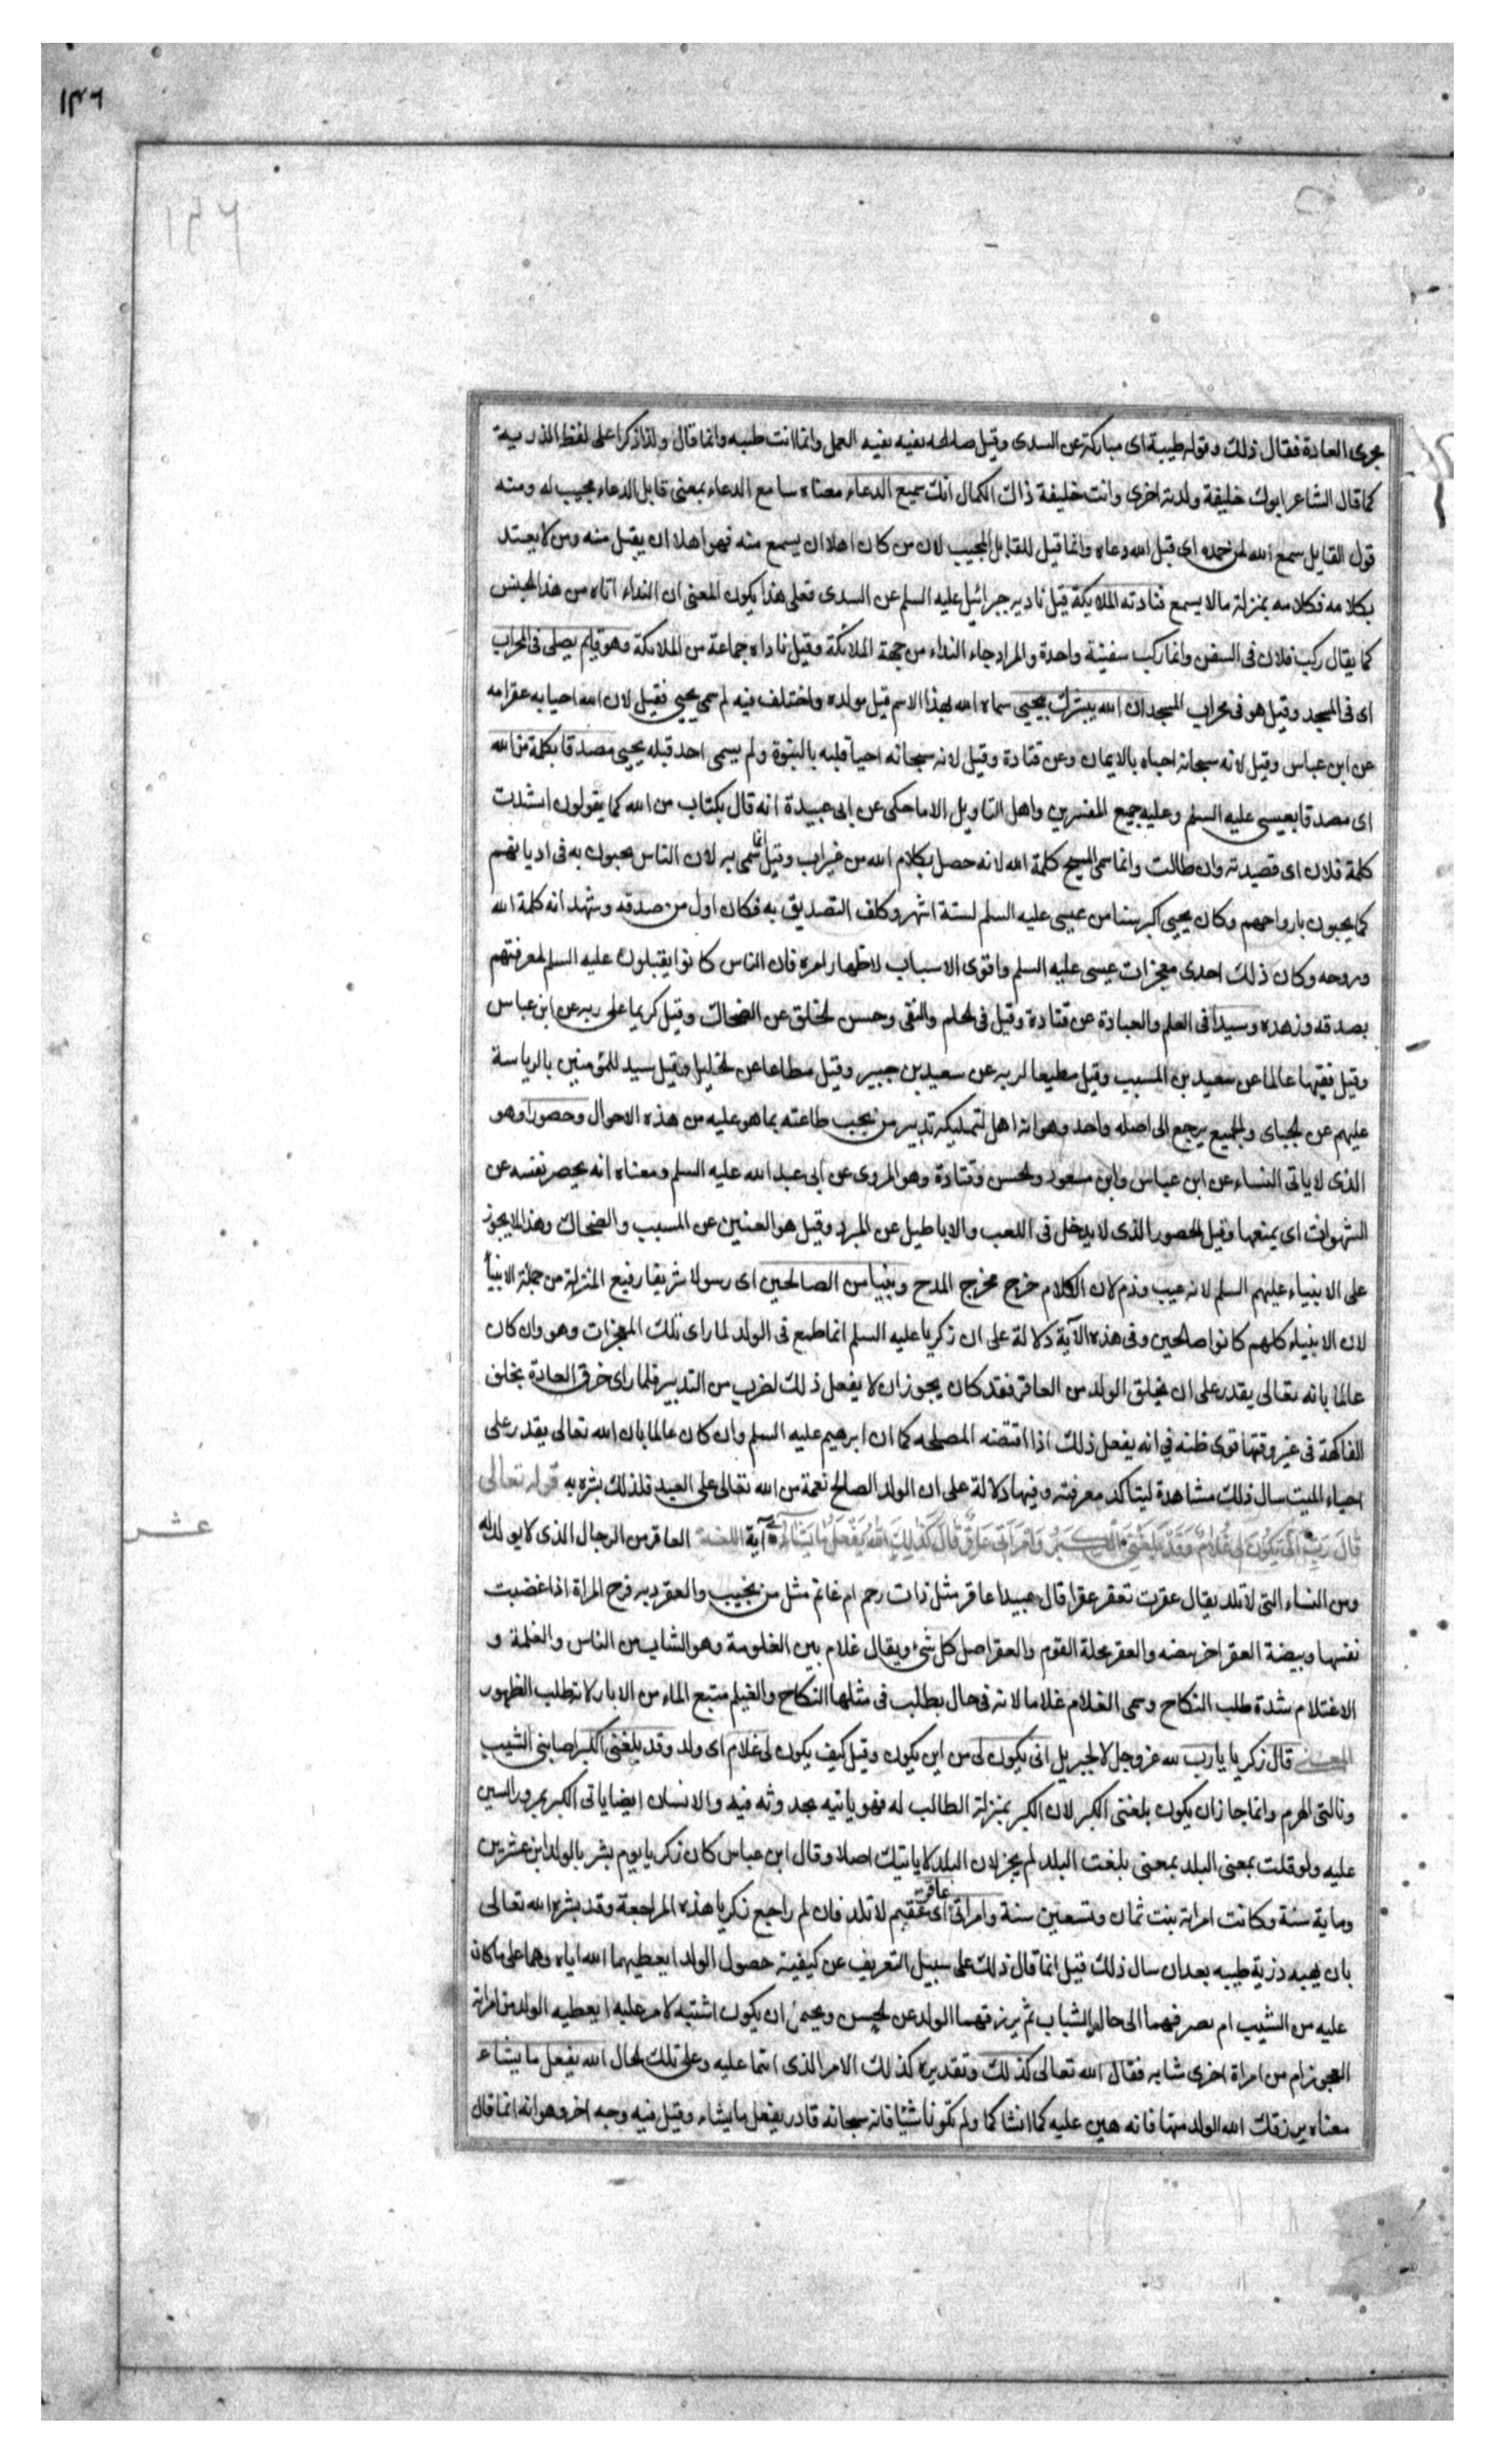 ١٣٦
مجرى العادة فقال ذلك وقوله طيبة اى مباركة عن السدى وقيل صالحه بقيه بقيه العمل وانما انث طيبه وانما قال ولدا ذكرا على لفظ الذرية
كما قال الشاعر ابوك خليفة ولدته اخرى وانت خليفة ذاك الكمال انك سميع الدعاء معناه سامع الدعاء بمعنى قابل الدعاء مجيب له ومنه
قول القايل سمع الله لمن حمده اى قبل الله دعاه وانما قيل للقابل المجيب لان من كان اهلا ان يسمع منه فهو اهلا ان يقبل منه ومن لا يعتد
بكلامه فكلامه بمنزلة مالا يسمع فنادته الملايكة قيل ناديه جبرائيل عليه السلم عن السدى فعلى هذا يكون المعنى ان النداء اتاه من هذا الجنس
كما يقال ركب فلان فى السفن وانما ركب سفينة واحدة والمراد جاء النداء من جهة الملائكة وقيل ناداه جماعة من الملائكة وهو قايم يصلى فى المحراب
اى فى المسجد وقيل هو فى محراب المسجد ان الله يبشرك بيحيى سماه الله بهذا الاسم قبل مولده واختلف فيه لم سمى يحيى فقيل لان الله احيا به عقر امه
عن ابن عباس وقيل لانه سبحانه احياه بالايمان وعن قتادة وقيل لانه سبحانه احيا قلبه بالنبوة ولم يسمى احد قبله يحيى مصدقا بكلمة من الله
اى مصدقا بعيسى عليه السلم وعليه جميع المفسرين واهل التاويل الا ما حكى عن ابى عبيدة انه قال بكتاب من الله كما يقولون انشدت
كلمة فلان اى قصيدته وان طالت وانما سمى المسيح كلمة الله لانه حصل بكلام الله من غير اب وقيل انما سمى به لان الناس يحيون به فى اديانهم
كما يحيون بارواحهم وكان يحيى اكبر سنا من عيسى عليه السلم لستة اشهر وكلف التصديق به فكان اول من صدقه وشهد انه كلمة الله
وروحه وكان ذلك احدى معجزات عيسى عليه السلم واقوى الاسباب لاظهار امره فان الناس كانوا يقبلون عليه السلم لمعرفتهم
بصدقه وزهده وسيدا فى العلم والعبادة عن قتادة وقيل فى الحلم والتقى وحسن الخلق عن الضحاك وقيل كريما على ربه عن ابن عباس
وقيل فقيها عالما عن سعيد بن المسيب وقيل مطيعا لربه عن سعيد بن جبير وقيل مطاعا عن الخليل وقيل سيد للمؤمنين بالرياسة
عليهم عن الجباى والجميع يرجع الى اصله واحد وهو انه اهل لتمليكه تدبير من يجب طاعته بما هو عليه من هذه الاحوال وحصورا وهو
الذى لا ياتى النساء عن ابن عباس وابن مسعود والحسن وقتادة وهو المروى عن ابى عبد الله عليه السلم ومعناه انه يحصر نفسه عن
الشهوات اى يمنعها وقيل الحصور الذى لا يدخل فى اللعب والاباطيل عن المبرد وقيل هو العنين عن المسيب والضحاك وهذا لا يجوز
على الانبياء عليهم السلم لانه عيب وذم لان الكلام خرج مخرج المدح ونبيا من الصالحين اى رسولا شريفا رفيع المنزلة من جملة الانبيا
لان الانبياء كلهم كانوا صالحين وفى هذه الآية دلالة على ان زكريا عليه السلم انما طمع فى الولد لما راى تلك المعجزات وهو وان كان
عالما بانه تعالى يقدر على ان يخلق الولد من العاقر فقد كان يجوز ان لا يفعل ذلك لضرب من التدبير فلما راى خرق العادة بخلق
الفاكهة فى غير وقتها قوى ظنه فى انه يفعل ذلك اذا اقتضته المصلحه كما ان ابرهيم عليه السلم وان كان عالما بان الله تعالى يقدر على
احياء الميت سال ذلك مشاهدة ليتاكد معرفته وفيها دلالة على ان الولد الصالح نعمة من الله تعالى على العبد فلذلك بشره به قوله تعالى
قَالَ رَبِّ أَنَّى يَكُونُ لِي غُلَامٌ وَقَدْ بَلَغَنِيَ الْكِبَرُ وَامْرَأَتِي عَاقِرٌ قَالَ كَذَلِكَ اللَّهُ يَفْعَلُ مَا يَشَاءُ آية اللغة العاقر من الرجال الذى لا يولد له
ومن النساء التى لا تلد يقال عقرت تعقر عقرا قال عبيد اعاقر مثل ذات رحم ام غانم مثل من يخيب والعقر ديه فرج المراة اذا غضبت
نفسها وبيضة العقر اخر بيضه والعقر محلة القوم والعقر اصل كل شئ ويقال غلام بين الغلومة وهو الشاب من الناس والغلمة و
الاغتلام شدة طلب النكاح وسمى الغلام غلاما لانه فى حال يطلب فى مثلها النكاح والغيلم منبع الماء من الابار لانه يطلب الظهور
المعنى قال زكريا يا رب لله عز وجل لا لجبريل انى يكون لى من اين يكون وقيل كيف يكون لى غلام اى ولد وقد بلغنى الكبر اصابنى الشيب
ونالنى الهرم وانما جاز ان يكون بلغنى الكبر لان الكبر بمنزلة الطالب له فهو ياتيه بحدوثه فيه والانسان ايضا ياتى الكبر بمرور السنين
عليه ولو قلت بمعنى البلد بمعنى بلغت البلد لم يجز لان البلد لا ياتيك اصلا وقال ابن عباس كان زكريا يوم بشر بالولد ابن عشرين
وماية سنة وكانت امراته بنت ثمان وتسعين سنة وامراتى عاقر اى عقيم لا تلد فان لم راجع زكريا هذه المراجعة وقد بشره الله تعالى
بان يهبه ذرية طيبه بعد ان سال ذلك قيل انما قال ذلك على سبيل التعريف عن كيفية حصول الولد ايعطيهما الله اياه وهما على ما كانا
عليه من الشيب ام يصرفهما الى حال الشباب ثم يرزقهما الولد عن الحسن ويحتمل ان يكون اشتبه الامر عليه ايعطيه الولد من امراته
العجوز ام من امراة اخرى شابه فقال الله تعالى كذلك وتقديره كذلك الامر الذى انتما عليه وعلى تلك الحال الله يفعل ما يشاء
معناه يرزقك الله الولد منها فانه هين عليه كما انشاكما ولم تكونا شيئا فانه سبحانه قادر يفعل ما يشاء وقيل فيه وجه اخر وهو انه انما قال
عشر